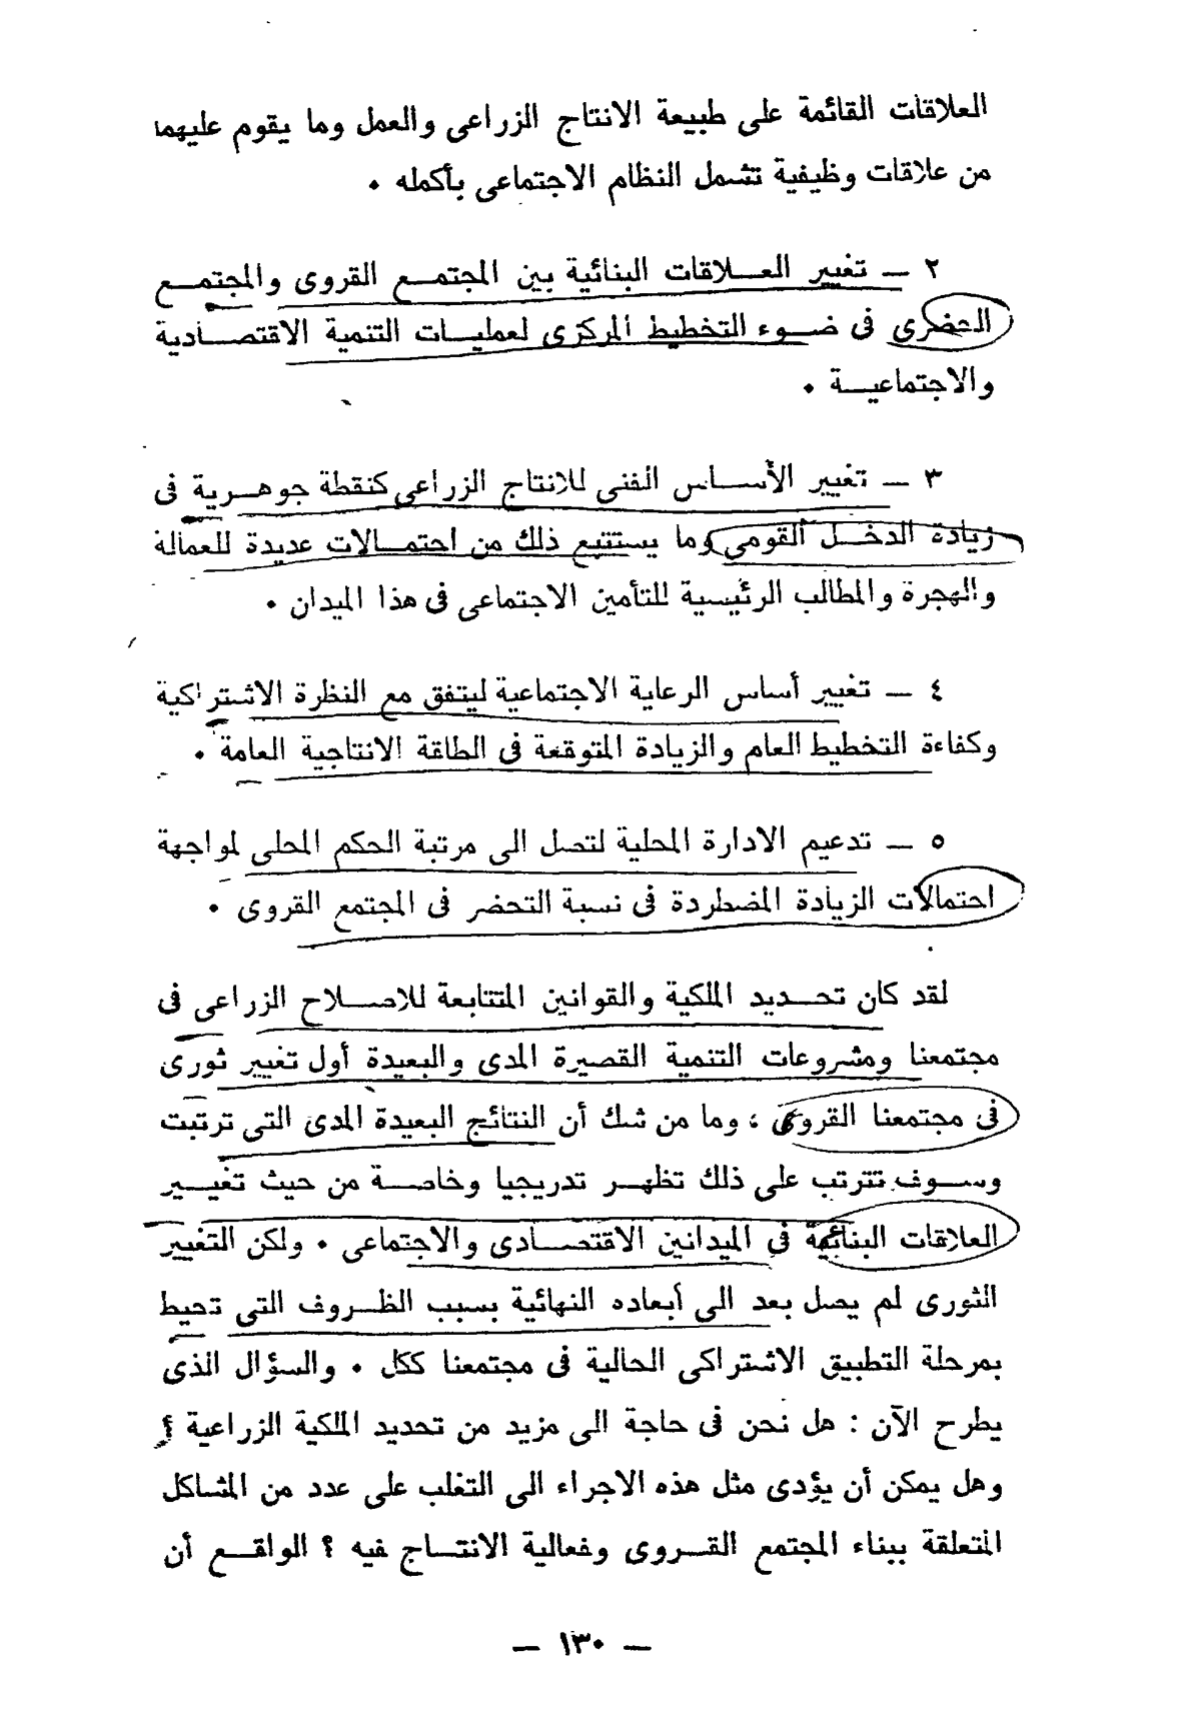 العلاقات القائمة على طبيعة الانتاج الزراعى والعمل وما يقوم عليهما
من علاقات وظيفية تشمل النظام الاجتماعى بأكمله ٠
٢ ــ تغيير العـــلاقات البنائية بين المجتمـــع القروى والمجتمـــع
الحضرى فى ضـــوء التخطيط المركزى لعمليـــات التنمية الاقتصـــادية
والاجتماعيـــة ٠
٣ ــ تغيير الأســـاس الفنى للانتاج الزراعى كنقطة جوهـــرية فى
زيادة الدخـــل القومى وما يستتبع ذلك من احتمـــالات عديدة للعمالة
والهجرة والمطالب الرئيسية للتأمين الاجتماعى فى هذا الميدان ٠
٤ ــ تغيير أساس الرعاية الاجتماعية ليتفق مع النظرة الاشتراكية
وكفاءة التخطيط العام والزيادة المتوقعة فى الطاقة الانتاجية العامة ٠
٥ ــ تدعيم الادارة المحلية لتصل الى مرتبة الحكم المحلى لمواجهة
احتمالات الزيادة المضطردة فى نسبة التحضر فى المجتمع القروى ٠
لقد كان تحـــديد الملكية والقوانين المتتابعة للاصـــلاح الزراعى فى
مجتمعنا ومشروعات التنمية القصيرة المدى والبعيدة أول تغيير ثورى
فى مجتمعنا القروى ، وما من شك أن النتائج البعيدة المدى التى ترتبت
وســـوف تترتب على ذلك تظهـــر تدريجيا وخاصـــة من حيث تغيـــير
العلاقات البنائية فى الميدانين الاقتصـــادى والاجتماعى ٠ ولكن التغيير
الثورى لم يصل بعد الى أبعاده النهائية بسبب الظـــروف التى تحيط
بمرحلة التطبيق الاشتراكى الحالية فى مجتمعنا ككل ٠ والسؤال الذى
يطرح الآن : هل نحن فى حاجة الى مزيد من تحديد الملكية الزراعية ؟
وهل يمكن أن يؤدى مثل هذه الاجراء الى التغلب على عدد من المشاكل
المتعلقة ببناء المجتمع القـــروى وفعالية الانتـــاج فيه ؟ الواقـــع أن
ــ ١٣٠ ــ